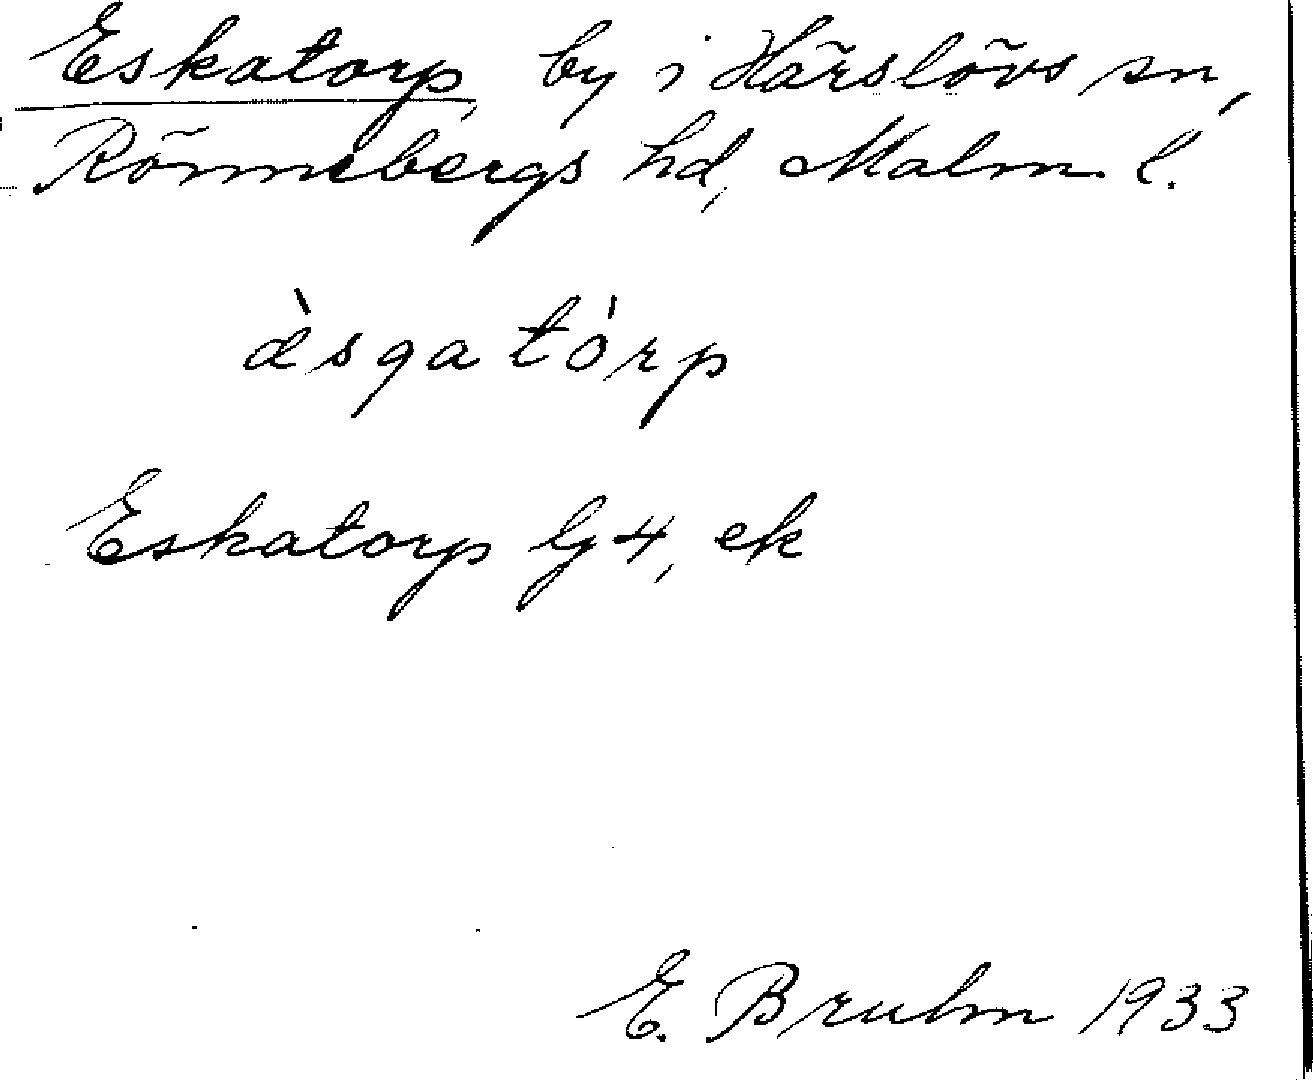 Eskatorp, by i Härslövs sn,
Rönnebergs hd, Malm. l.
æ̀sgatórp
Eskatorp Gg 4, ek
E. Bruhn 1933